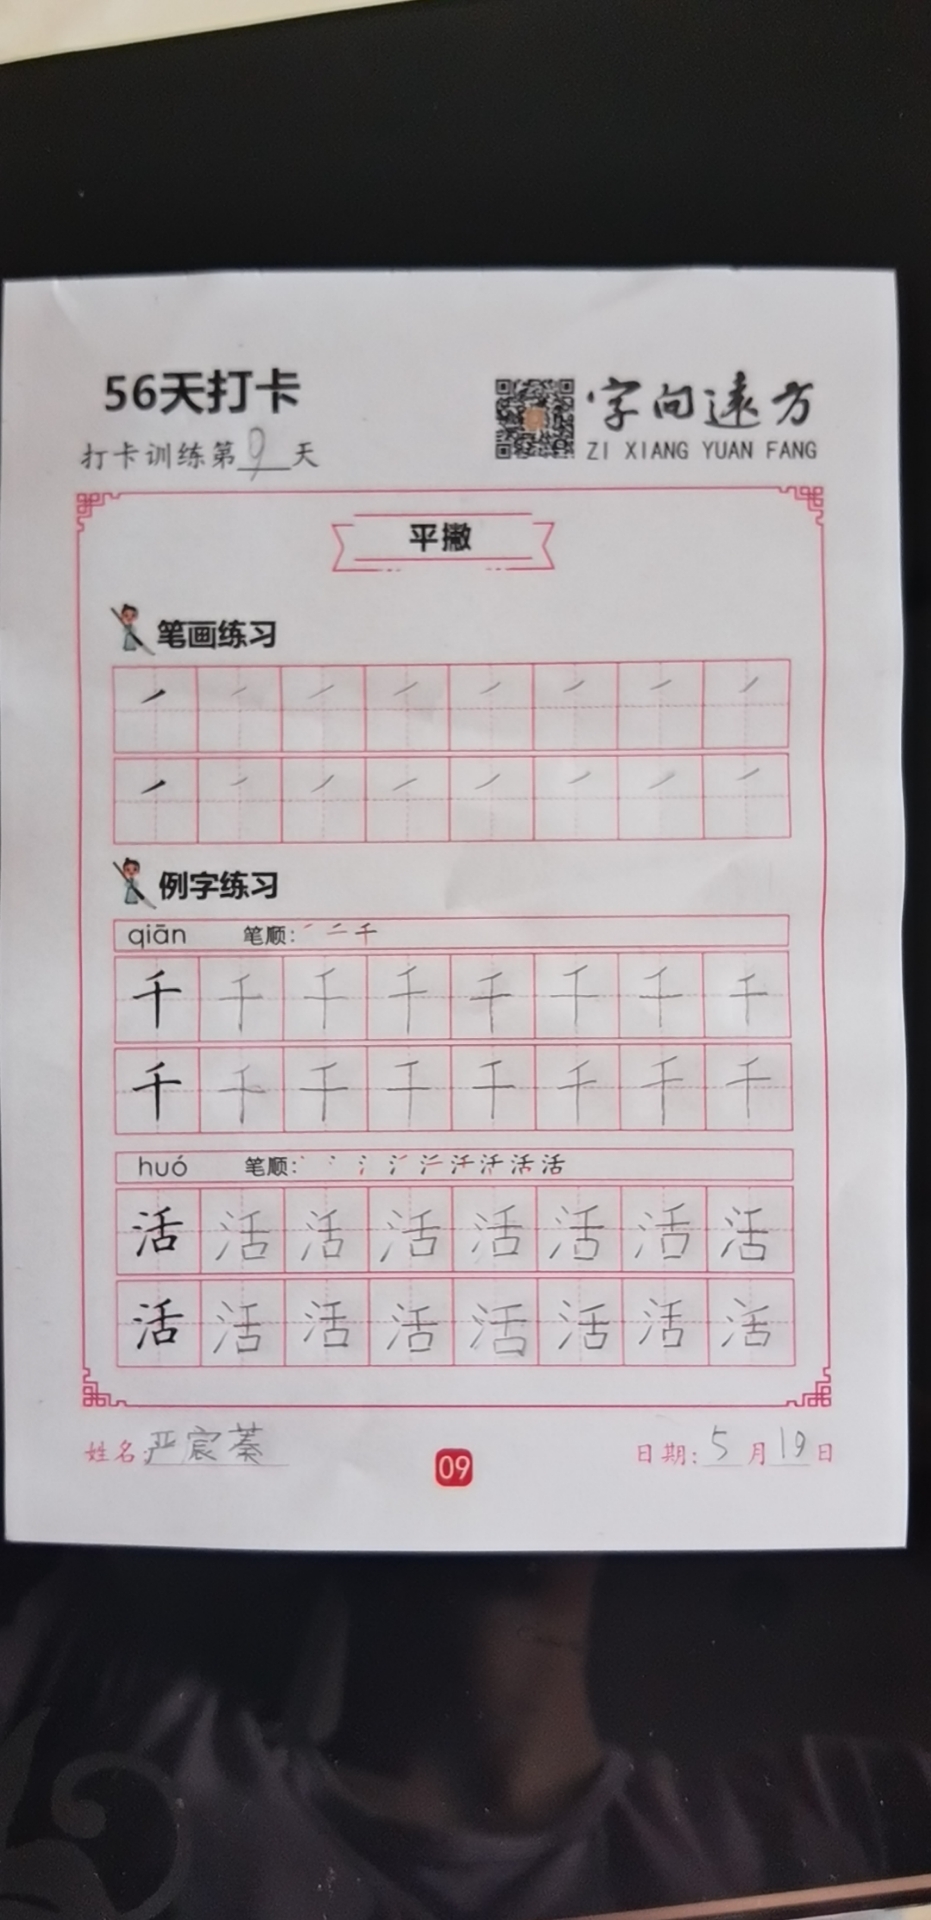 56天打卡
字向远方
打卡训练第9天
ZI XIANG YUAN FANG
平撇
笔画练习
例字练习
qiān 笔顺:
千 千 千 千 千 千 千 千
千 千 千 千 千 千 千 千
huó 笔顺:
活 活 活 活 活 活 活 活
活 活 活 活 活 活 活 活
姓名:严宸蓁
09
日期:5月19日